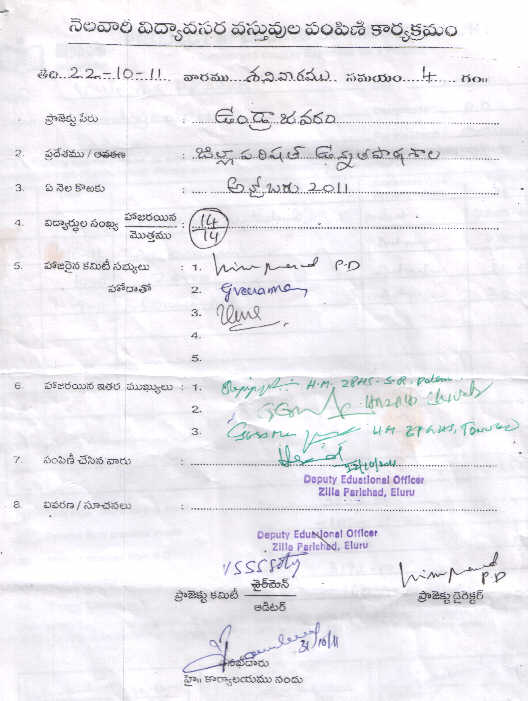 నెలవారి విద్యావసర వస్తువుల పంపిణి కార్యక్రమం
తేది...22-10-11... వారము...శనివారము... సమయం...4... గం॥
1. ప్రాజెక్టు పేరు : ఉండ్రాజవరం
2. ప్రదేశము / ఆవరణ : జిల్లా పరిషత్ ఉన్నత పాఠశాల
3. ఏ నెల కొఱకు : అక్టోబరు 2011
4. విద్యార్థుల సంఖ్య హాజరయిన / మొత్తము : 14 / 14
5. హాజరైన కమిటీ సభ్యులు : 1. P.D
హోదాతో 2.
3.
4.
5.
6. హాజరయిన ఇతర ముఖ్యులు : 1. H.M. ZPHS
2.
3. HM ZPGHS,
7. పంపిణీ చేసిన వారు :
22/10/2011
Deputy Eduational Officer
Zilla Parichad, Eluru
8. వివరణ / సూచనలు :
Deputy Eduational Officer
Zilla Parichad, Eluru
ప్రాజెక్టు కమిటీ ఛైర్‌మెన్ / ఆడిటర్
P.D
ప్రాజెక్టు డైరెక్టర్
31/10/11
హై॥ కార్యాలయము నందు